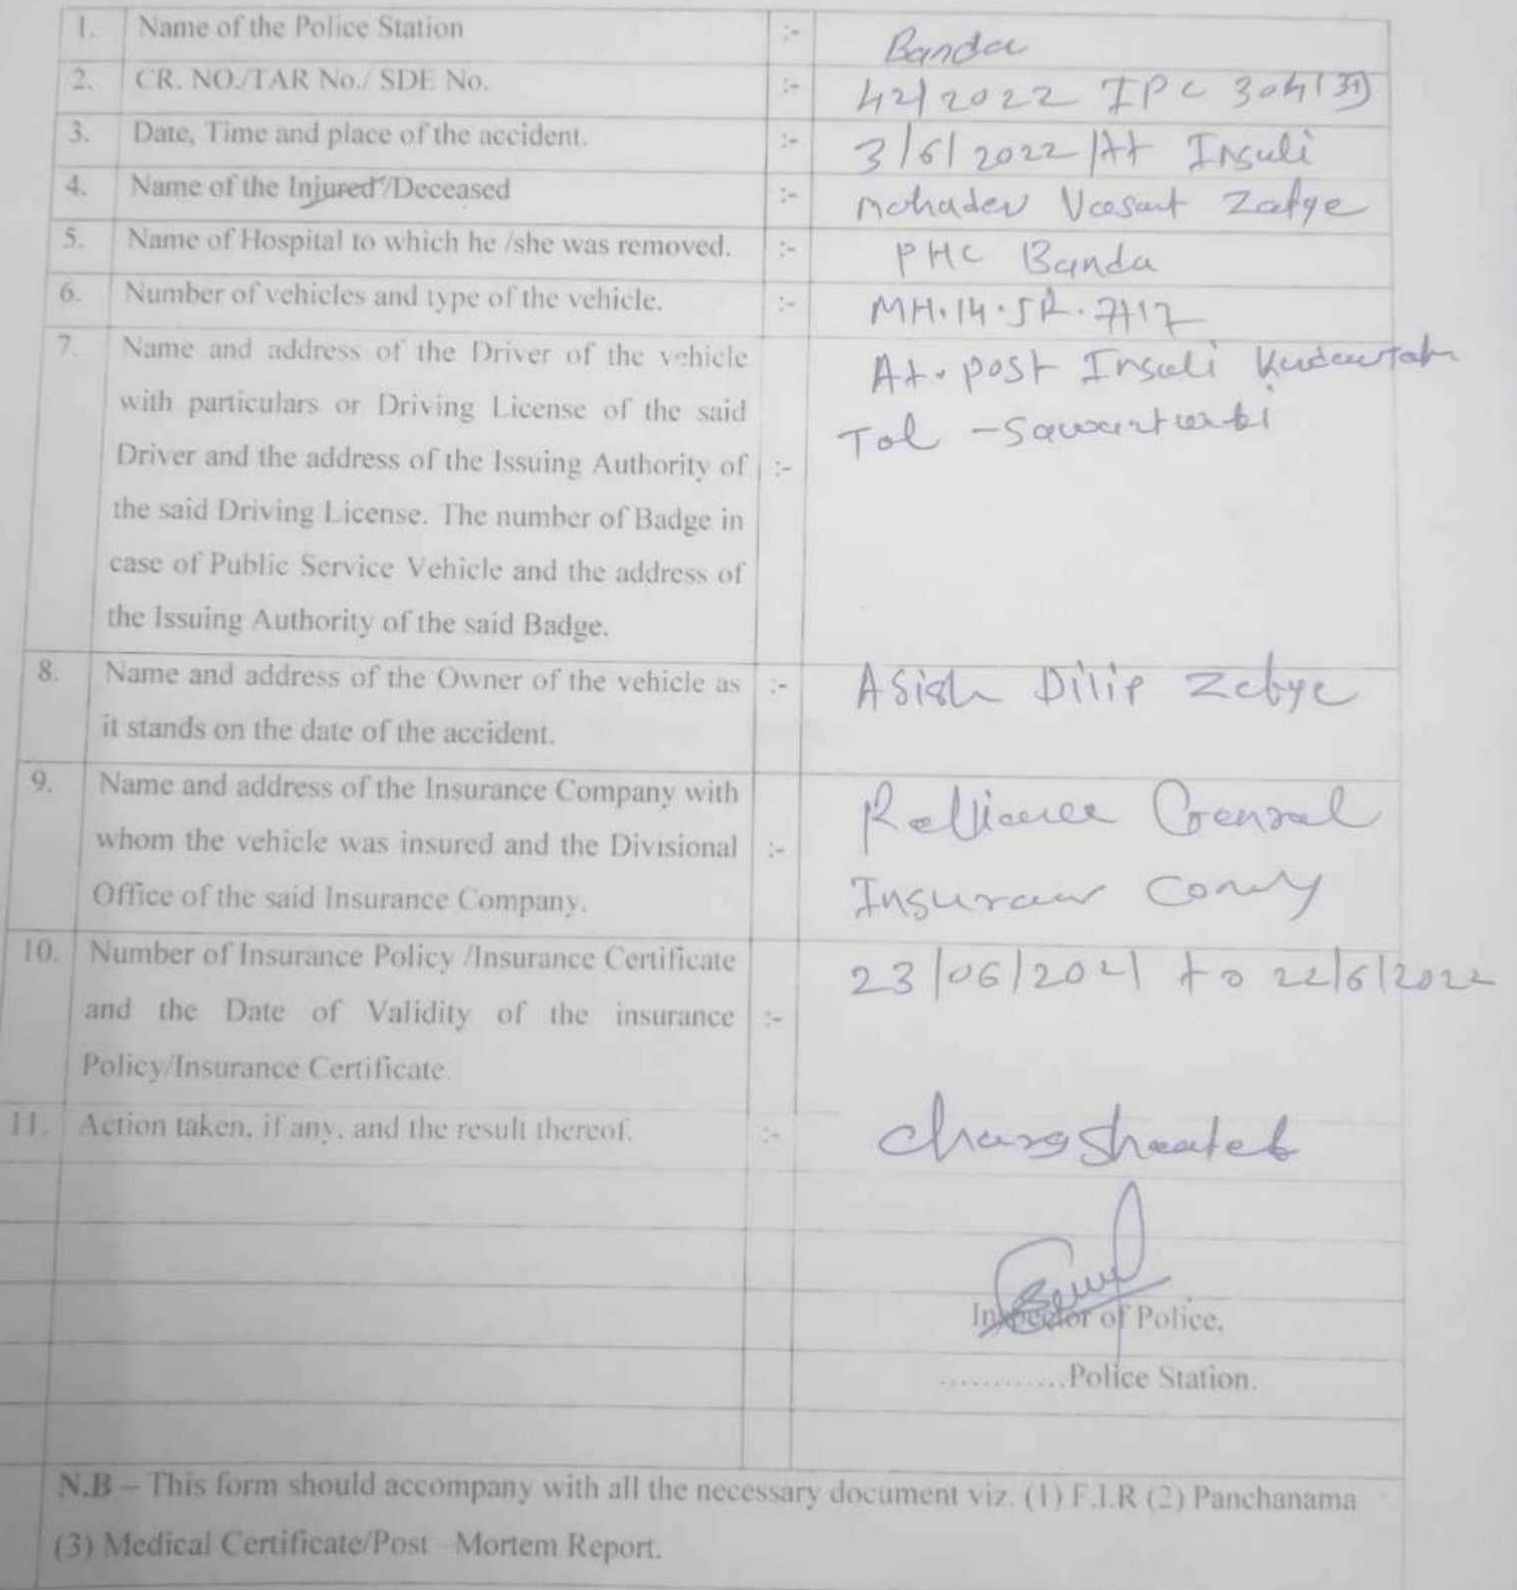 1. Name of the Police Station :- Banda
2. CR. NO./TAR No./ SDE No. :- 42/2022 IPC 304(अ)
3. Date, Time and place of the accident. :- 3/6/2022 /At Insuli
4. Name of the Injured/Deceased :- Mahadev Vasant Zatye
5. Name of Hospital to which he /she was removed. :- PHC Banda
6. Number of vehicles and type of the vehicle. :- MH.14.
7. Name and address of the Driver of the vehicle At. post Insuli
with particulars or Driving License of the said Tal - Sawantwadi
Driver and the address of the Issuing Authority of :-
the said Driving License. The number of Badge in
case of Public Service Vehicle and the address of
the Issuing Authority of the said Badge.
8. Name and address of the Owner of the vehicle as :- Asish Dilip Zatye
it stands on the date of the accident.
9. Name and address of the Insurance Company with Relliance Genral
whom the vehicle was insured and the Divisional :-
Office of the said Insurance Company. Insurance
10. Number of Insurance Policy /Insurance Certificate 23/06/2021 to 22/6/2022
and the Date of Validity of the insurance :-
Policy/Insurance Certificate.
11. Action taken, if any, and the result thereof. :- Chargsheeted
Inspector of Police,
............Police Station.
N.B – This form should accompany with all the necessary document viz. (1) F.I.R (2) Panchanama
(3) Medical Certificate/Post –Mortem Report.